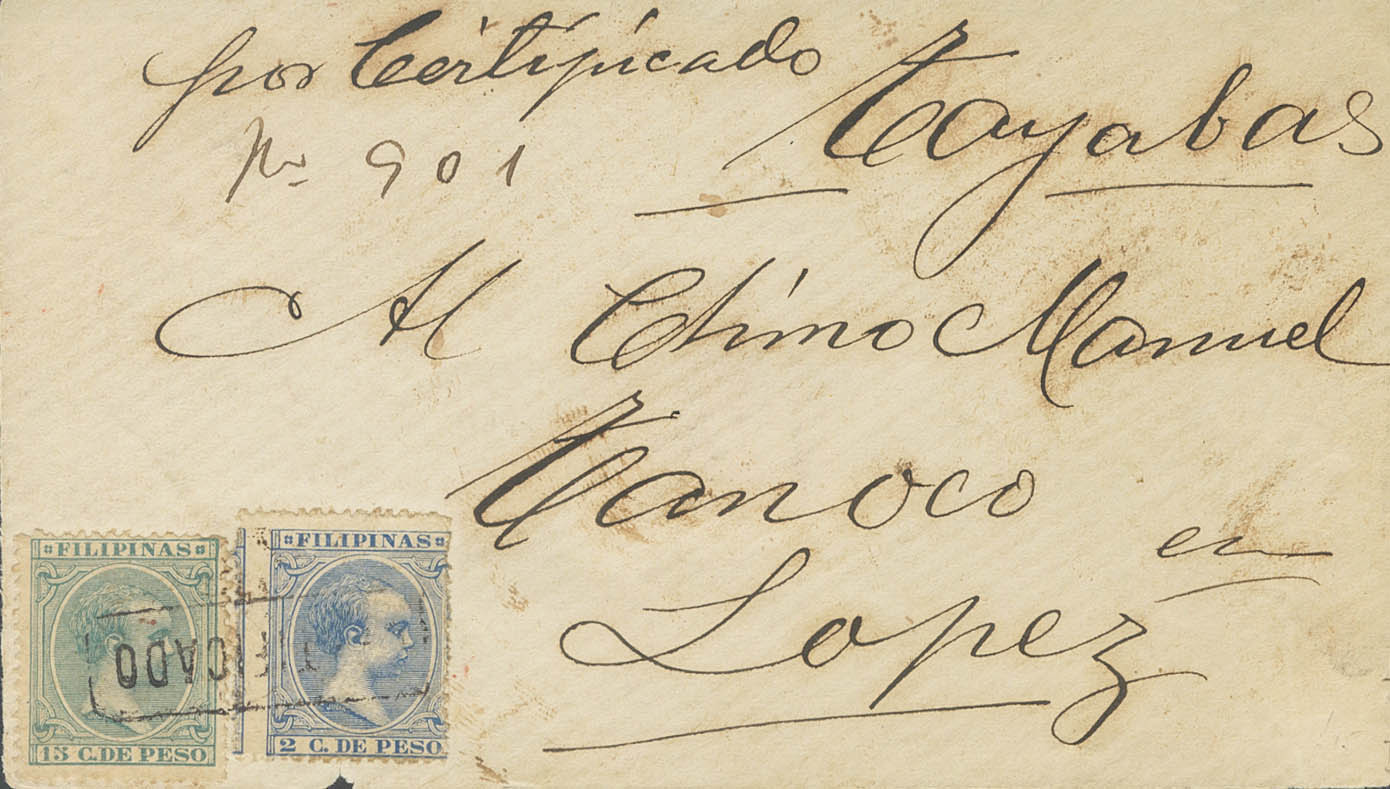 por Certificado
Tayabas
No 901
Al Chino Manuel
Tanoco
en
Lopez
FILIPINAS
15 C. DE PESO
FILIPINAS
2 C. DE PESO